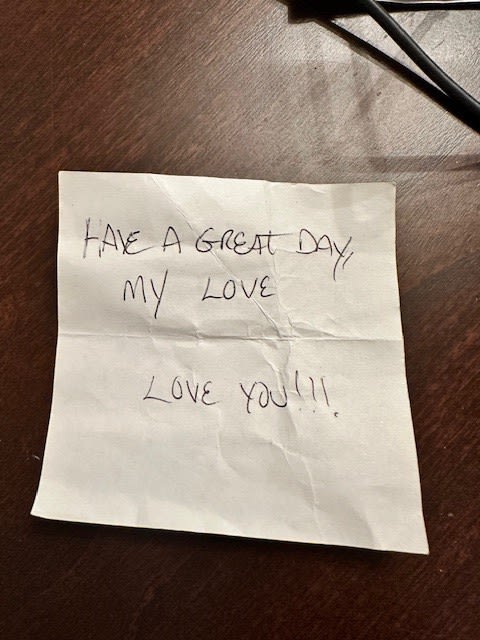 HAVE A GREAT DAY,
MY LOVE
LOVE YOU!!!